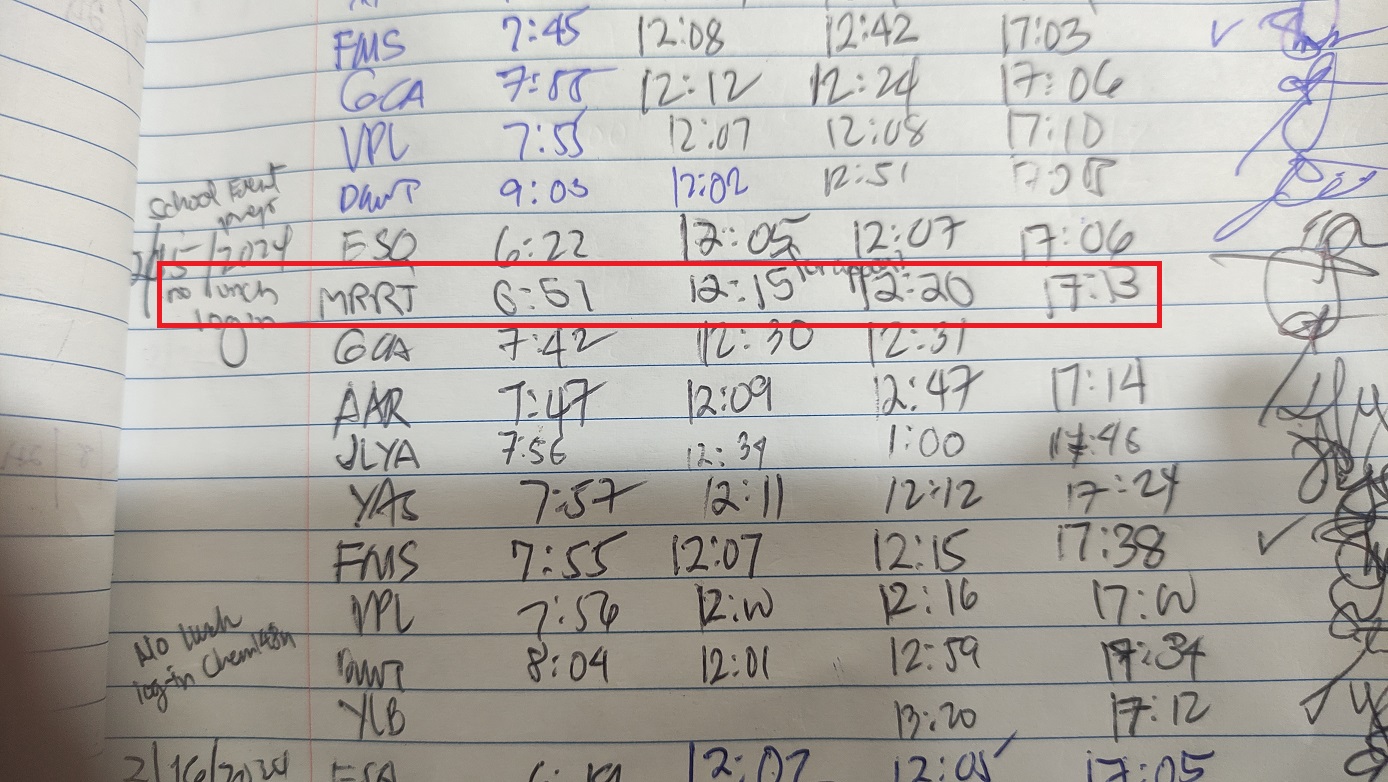 FMS 7:45 12:08 12:42 17:03 ✓
GCA 7:55 12:12 12:24 17:06
VPL 7:55 12:07 12:08 17:10
School Event
prep
DAWT 9:03 12:02 12:51
2/15/2024 ESQ 6:22 12:05 12:07 17:06
no lunch MRRT 6:51 12:15 12:20 17:13
login
GCA 7:42 12:30 12:31
AAR 7:47 12:09 12:47 17:14
JLYA 7:56 12:39 1:00 17:46
YAS 7:57 12:11 12:12 17:24
FMS 7:55 12:07 12:15 17:38 ✓
VPL 7:56 12:W 12:16 17:W
No lunch
log-in
DAWT 8:04 12:01 12:59 17:34
YLB 13:20 17:12
2/16/2024 12:07 12:05 17:05